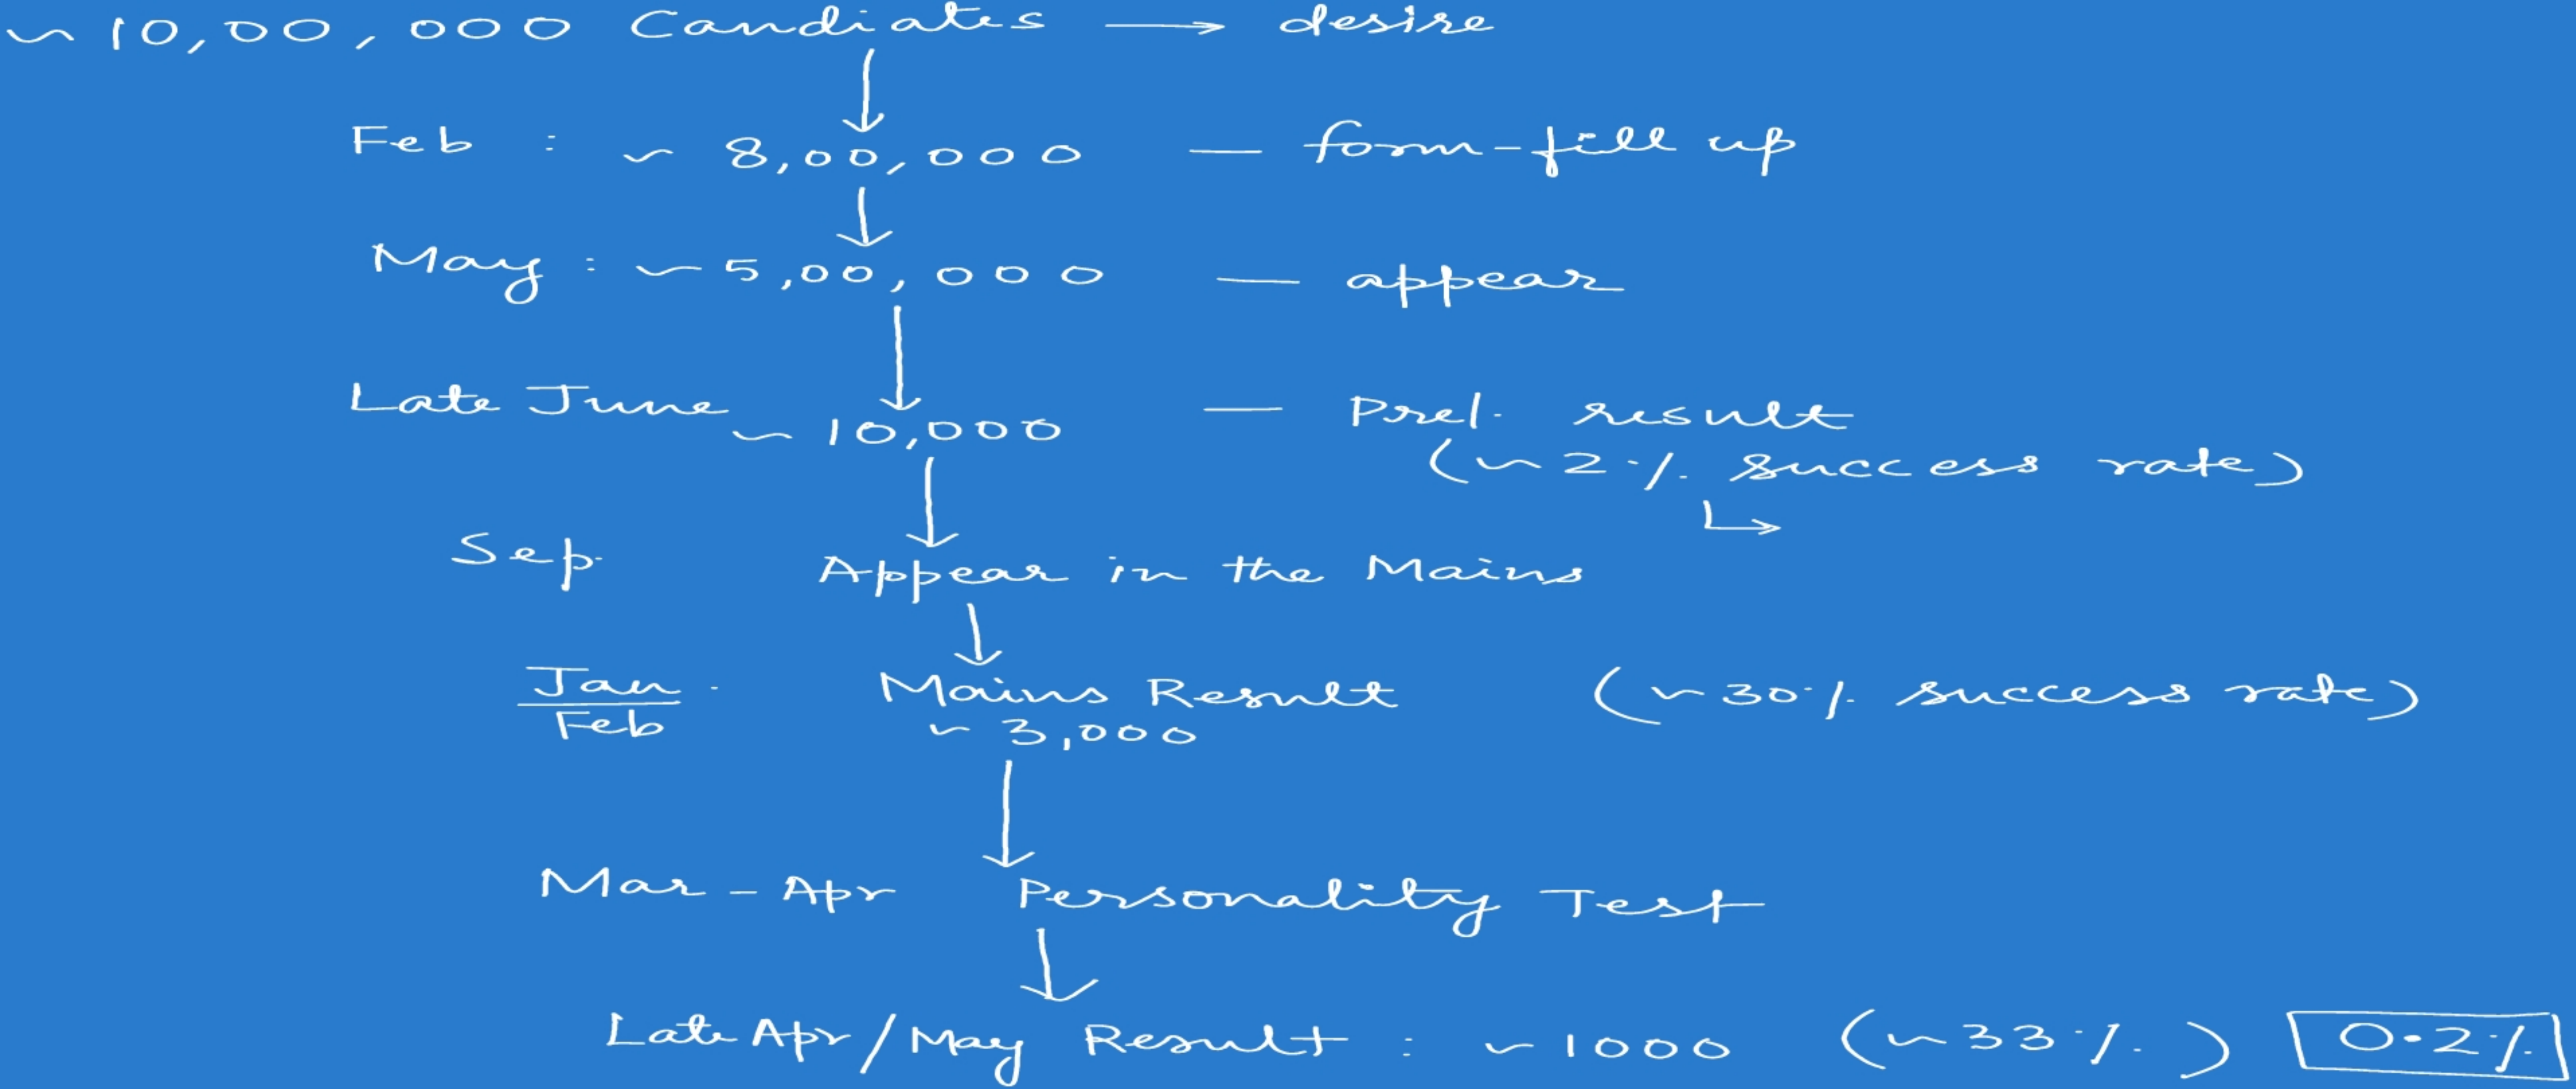 ~ 10,00,000 Candiates → desire
Feb : ~ 8,00,000 — form-fill up
May : ~ 5,00,000 — appear
Late June ~ 10,000 — Prel. result
(~ 2% success rate)
Sep. Appear in the Mains
Jan. Mains Result (~ 30% success rate)
Feb ~ 3,000
Mar - Apr Personality Test
Late Apr/May Result : ~ 1000 (~ 33%) 0.2%